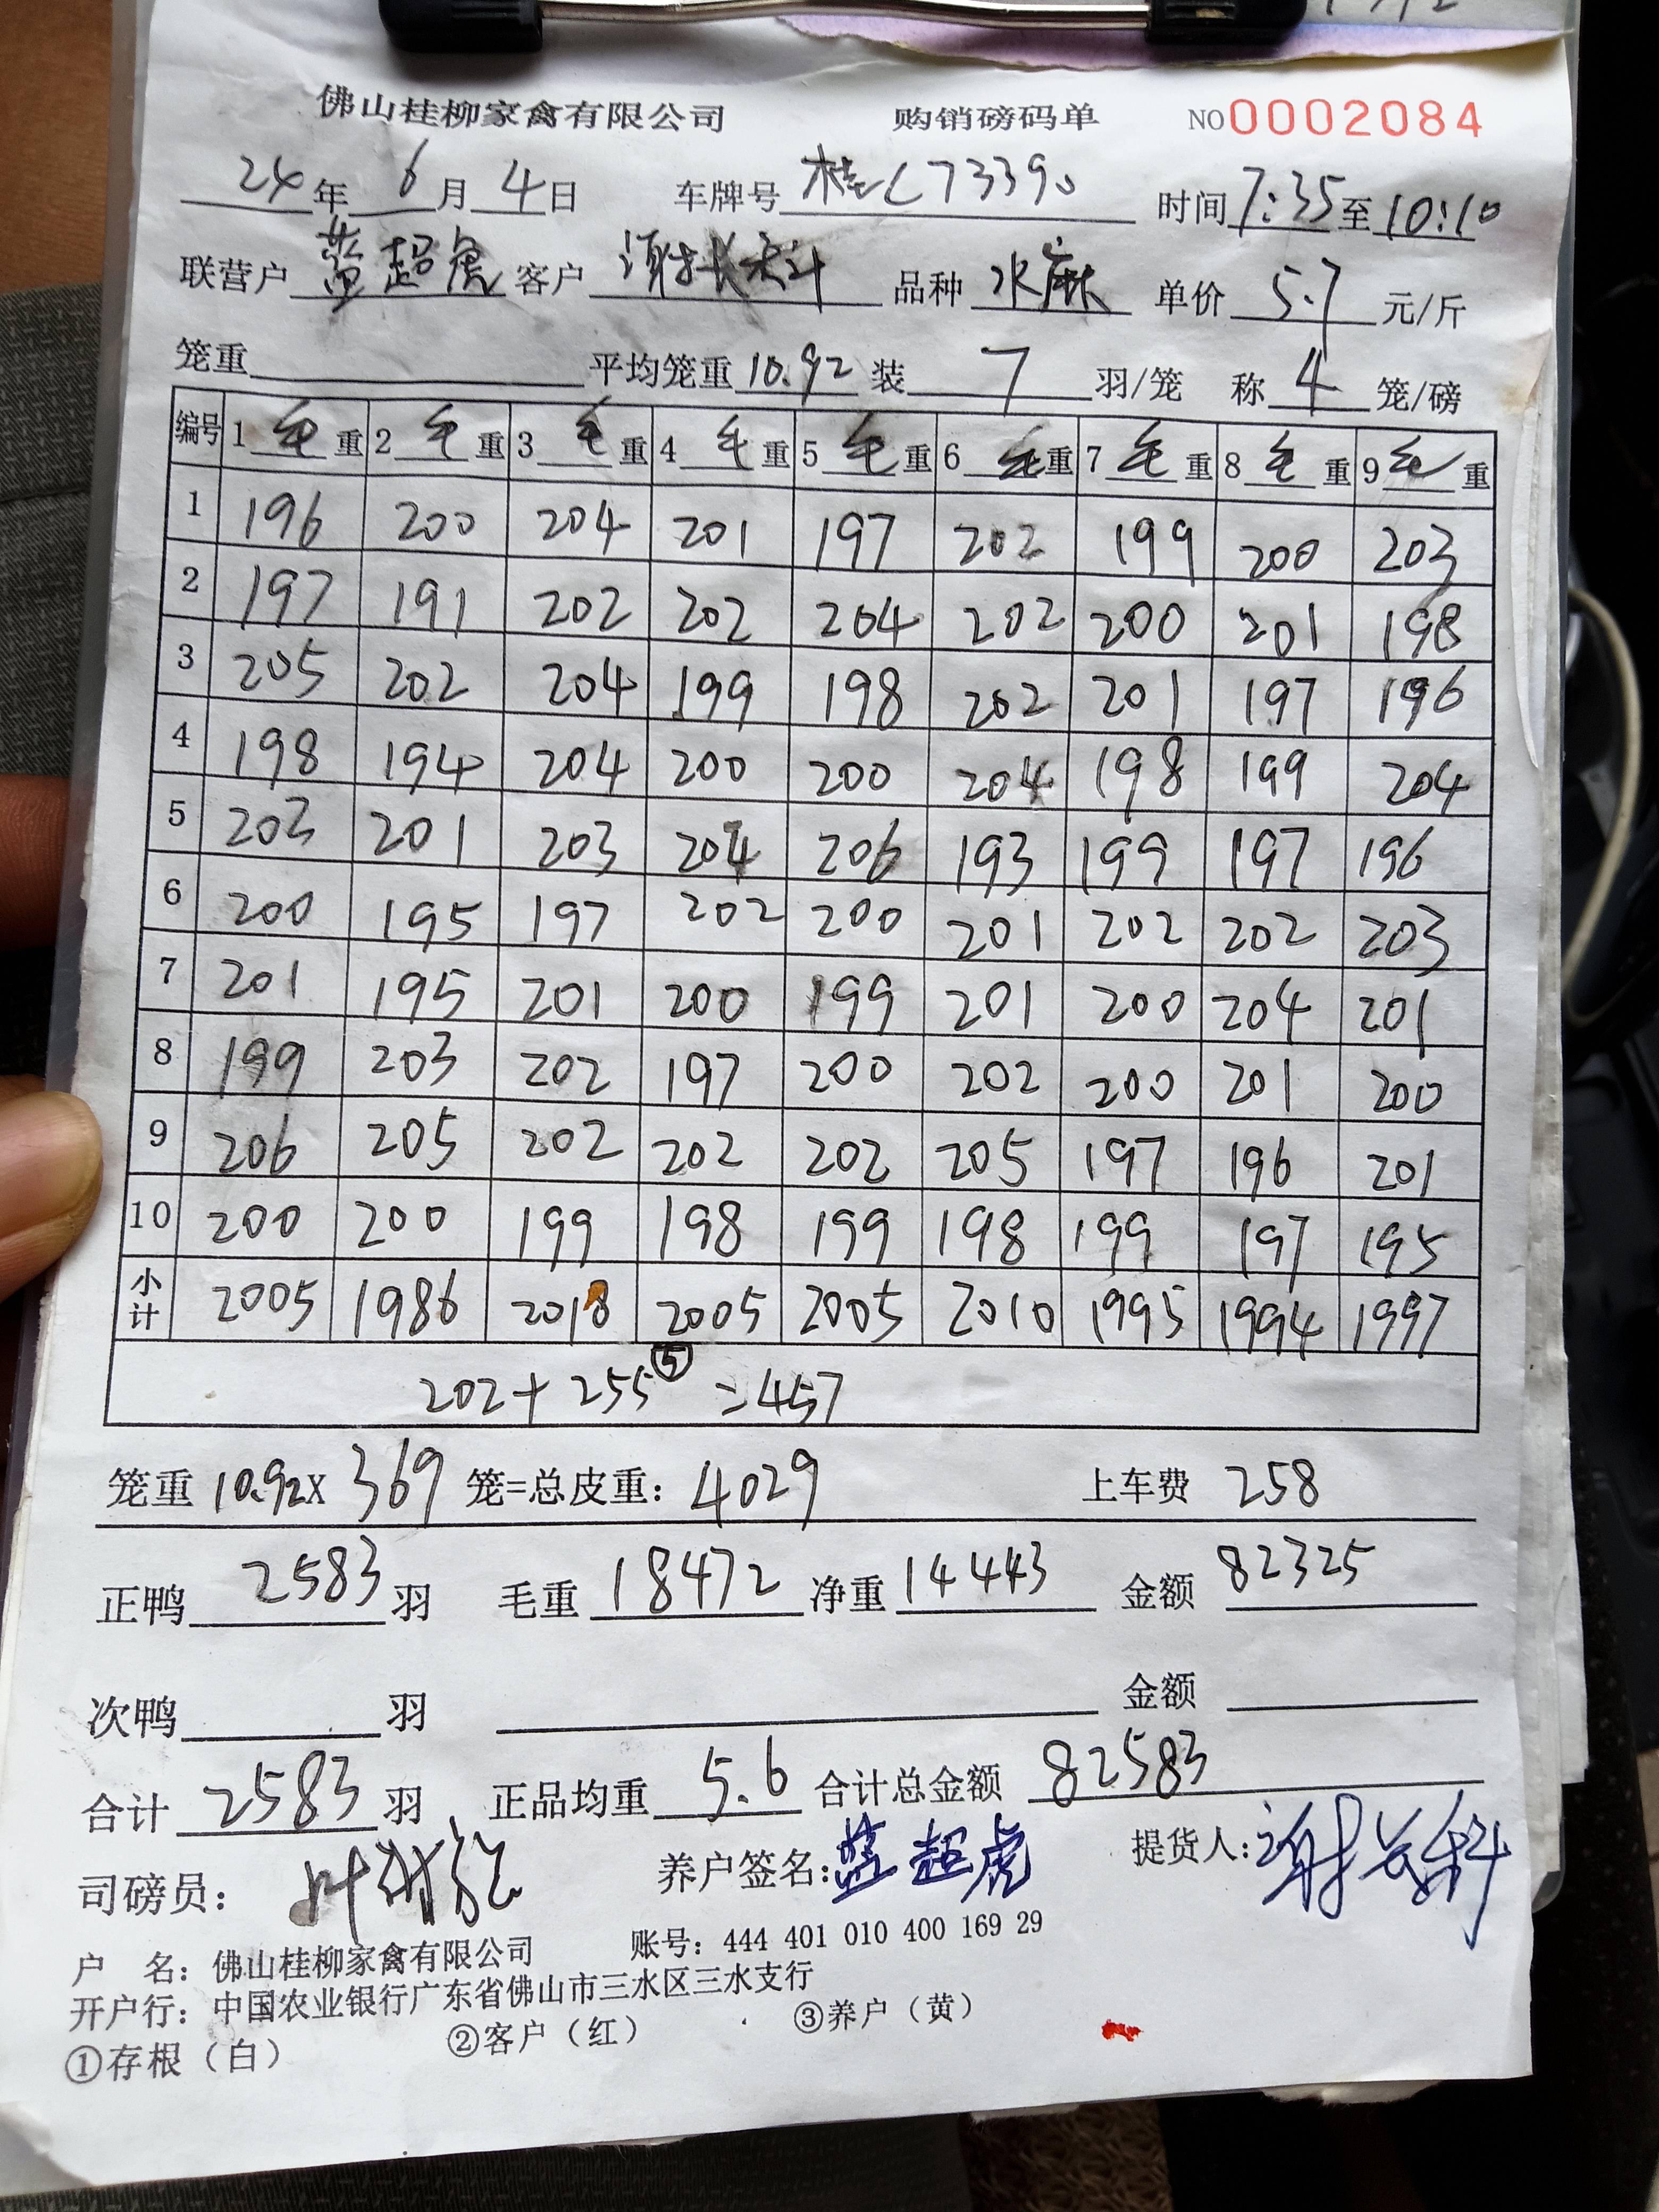 佛山桂柳家禽有限公司 购销磅码单 NO0002084
24年6月4日 车牌号 桂C73390 时间7:35至10:10
联营户 蓝超虎 客户 谢长科 品种 水麻 单价 5.7 元/斤
笼重 平均笼重 10.92 装 7 羽/笼 称 4 笼/磅
编号 1毛重 2毛重 3毛重 4毛重 5毛重 6毛重 7毛重 8毛重 9毛重
1 196 200 204 201 197 202 199 200 203
2 197 191 202 202 204 202 200 201 198
3 205 202 204 199 198 202 201 197 196
4 198 194 204 200 200 204 198 199 204
5 203 201 203 204 206 193 199 197 196
6 200 195 197 202 200 201 202 202 203
7 201 195 201 200 199 201 200 204 201
8 199 203 202 197 200 202 200 201 200
9 206 205 202 202 202 205 197 196 201
10 200 200 199 198 199 198 199 197 195
小计 2005 1986 2018 2005 2005 2010 1995 1994 1997
202+255⑤=457
笼重 10.92X 369 笼=总皮重: 4029 上车费 258
正鸭 2583 羽 毛重 18472 净重 14443 金额 82325
次鸭 羽 金额
合计 2583 羽 正品均重 5.6 合计总金额 82583
司磅员: 叶 养户签名:蓝超虎 提货人:谢长科
户 名: 佛山桂柳家禽有限公司 账号: 444 401 010 400 169 29
开户行: 中国农业银行广东省佛山市三水区三水支行
①存根（白） ②客户（红） ③养户（黄）